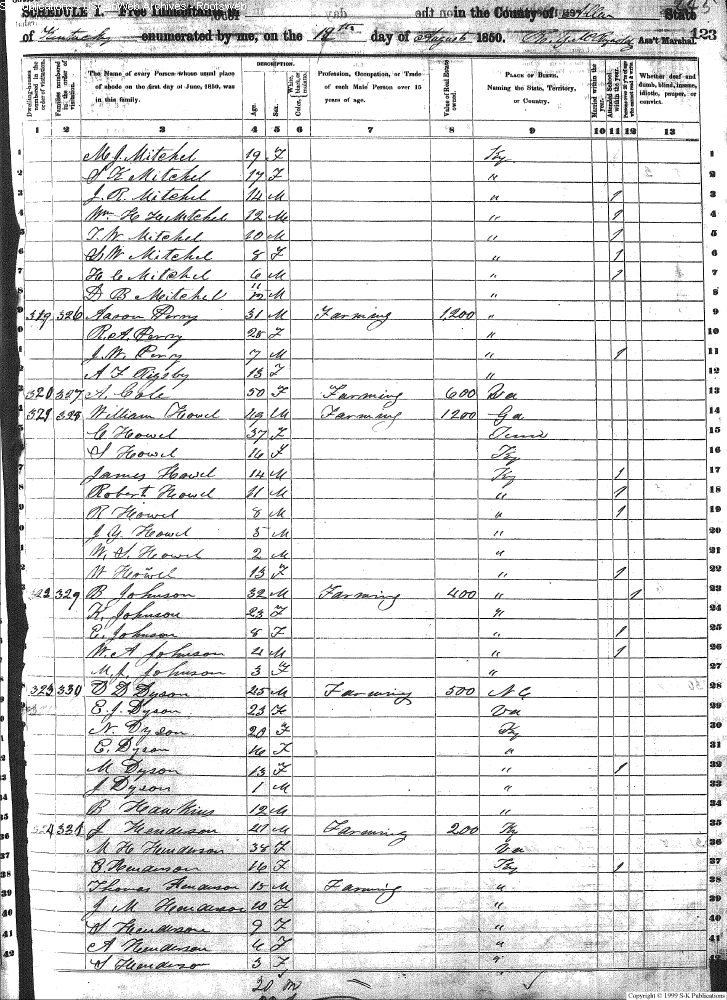 SCHEDULE I. Free Inhabitants in the County of Allen State
of Kentucky enumerated by me, on the 19th day of August 1850. Ass't Marshal. 123
Dwelling-houses numbered in the order of visitation. Families numbered in the order of visitation. The Name of every Person whose usual place of abode on the first day of June, 1850, was in this family. DESCRIPTION. Age. Sex. Color, White, black, or mulatto. Profession, Occupation, or Trade of each Male Person over 15 years of age. Value of Real Estate owned. PLACE OF BIRTH. Naming the State, Territory, or Country. Married within the year. Attended School within the year. Whether deaf and dumb, blind, insane, idiotic, pauper, or convict.
1 2 3 4 5 6 7 8 9 10 11 12 13
1 M. J. Mitchel 19 F Ky
2 S K Mitchel 17 F "
3 J. R. Mitchel 14 M " 1
4 Wm H H Mitchel 12 M " 1
5 T. W. Mitchel 10 M " 1
6 S W Mitchel 8 F " 1
7 H C Mitchel 6 M " 1
8 D B Mitchel M "
9 319 326 Aaron Perry 31 M Farming 1,200 "
10 R. A. Perry 25 F "
11 J. W. Perry 7 M " 1
12 A F Rigsby 13 F "
13 320 327 A. Cole 50 F Farming 600 Va
14 321 328 William Howel 42 M Farming 1200 Ga
15 C Howel 37 F Tenn
16 S Howel 16 F Ky
17 James Howel 14 M Ky 1
18 Robert Howel 11 M " 1
19 R Howel 8 M " 1
20 J. Y. Howel 5 M "
21 W. S. Howel 2 M "
22 W Howel 13 F " 1
23 322 329 B Johnson 32 M Farming 400 " 1
24 K. Johnson 23 F "
25 E. Johnson 8 F " 1
26 W. A Johnson 4 M " 1
27 M. J. Johnson 3 F "
28 323 330 D D Dyson 45 M Farming 500 N C
29 E. J. Dyson 23 F Va
30 N. Dyson 20 F Ky
31 C. Dyson 16 F "
32 M Dyson 13 F " 1
33 J Dyson 1 M "
34 B Hawkins 12 M "
35 324 331 J Henderson 41 M Farming 200 Ky
36 M H Henderson 38 F Va
37 E Henderson 16 F Ky 1
38 Thomas Henderson 15 M Farming "
39 J M Henderson 10 F "
40 S Henderson 9 F "
41 A Henderson 4 F "
42 S Henderso 3 F "
20 m
Copyright © 1999 S-K Publications